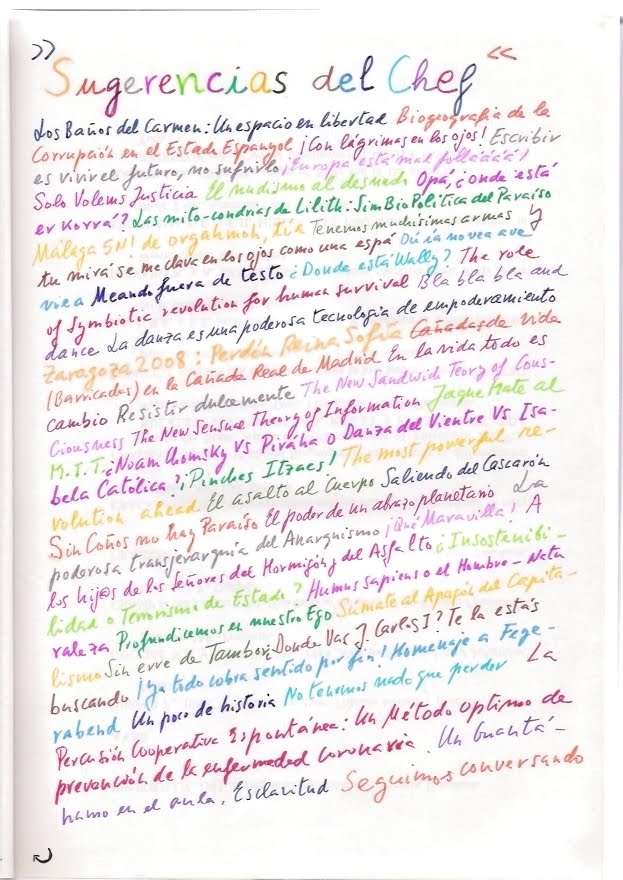 >> Sugerencias del Chef <<
Los Baños del Carmen: Un espacio en libertad Biogeografia de la
Corrupción en el Estado Espanyol ¡Con lágrimas en los ojos! Escribir
es vivir el futuro, no sufrirlo ¡Europa está mal follááááá!
Solo Volems Justicia El nudismo al desnudo Opá, ¿onde está
er Korra'? Las mito-condrias de Lilith: SimBioPolitica del Paraíso
Málaga 5N! de orgahmoh, túa Tenemos muchísimas armas y
tu mirá se me clava en los ojos como una espá Dú ía no vea ave
vie a Meando fuera de testo ¿Donde está Wally? The role
of Symbiotic revolution for human survival Bla bla bla and
dance La danza es una poderosa tecnologia de empoderamiento
Zaragoza 2008: Perdón Reina Sofía Cañadas de vida
(Barricadas) en la Cañada Real de Madrid En la vida todo es
cambio Resistir dulcemente The New Sandwich Teory of Cons-
ciousness The New Sensual Theory of Information Jaque Mate al
M.I.T.: ¿Noam Chomsky Vs Piraha o Danza del Vientre Vs Isa-
bela Católica? ¡Pinches Itzaes! The most powerful re-
volution ahead El asalto al Cuerpo Saliendo del Cascarón
Sin Coños no hay Paraíso El poder de un abrazo planetario La
poderosa transjerarquía del Anarquismo ¡Qué Maravilla! A
los hij@s de los señores del Hormigón y del Asfalto ¿Insostenibi-
lidad o Terrorismo de Estado? Humus sapiens o el Hombre-Natu
raleza Profundicemos en nuestro Ego Súmate al Apagón del Capita-
lismo Sin erre de Tambor ¿Donde Vas J. Carlos I? Te la estás
buscando ¡Ya todo cobra sentido por fin! Homenaje a Feye-
rabend Un poco de historia No tenemos nada que perder La
Percusión Cooperativa Espontánea: Un Método optimo de
prevención de la enfermedad coronaria. Un Guantá-
namo en el aula. Esclavitud Seguimos conversando